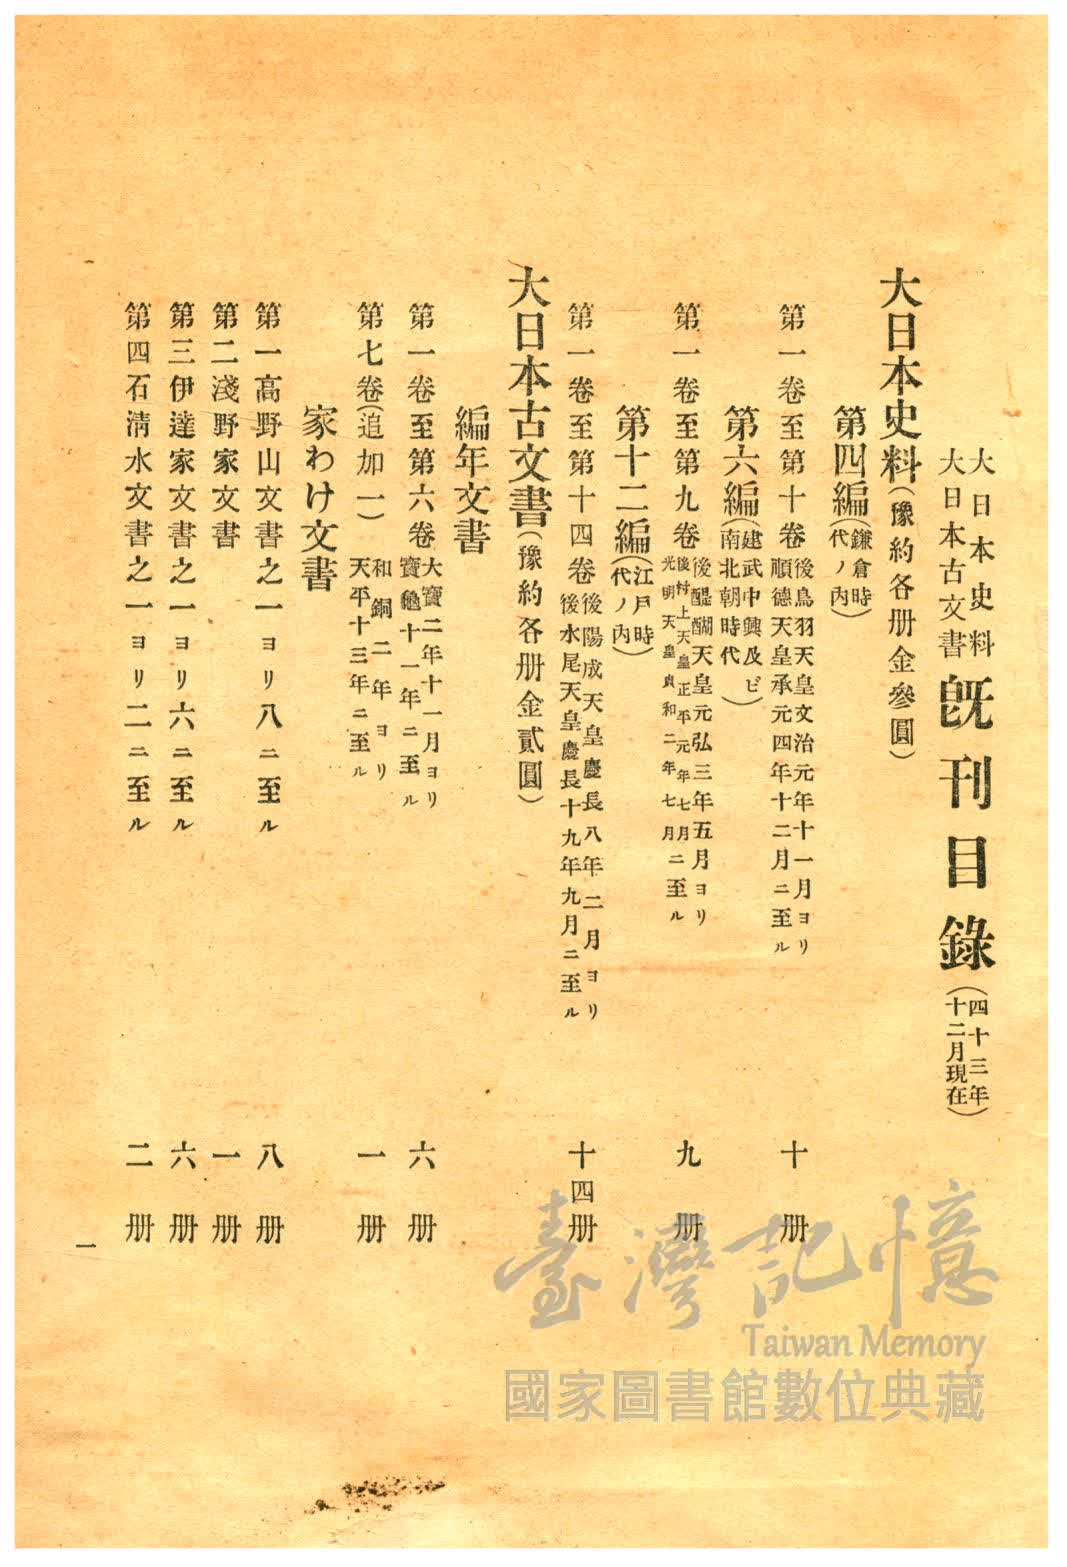 大日本史料
大日本古文書
既刊目錄
(四十三年
十二月現在)
大日本史料(豫約各册金參圓)
第四編(鎌倉時
代ノ內)
第一卷至第十卷
後鳥羽天皇文治元年十一月ヨリ
順德天皇承元四年十二月ニ至ル
十册
第六編(建武中興及ビ
南北朝時代)
第一卷至第九卷
後醍醐天皇元弘三年五月ヨリ
後村上天皇正平元年七月
光明天皇貞和二年七月ニ至ル
九册
第十二編(江戶時
代ノ內)
第一卷至第十四卷
後陽成天皇慶長八年二月ヨリ
後水尾天皇慶長十九年九月ニ至ル
十四册
大日本古文書(豫約各册金貳圓)
編年文書
第一卷至第六卷
大寶二年十一月ヨリ
寶龜十一年ニ至ル
六册
第七卷(追加一)
和銅二年ヨリ
天平十三年ニ至ル
一册
家わけ文書
第一高野山文書之一ヨリ八ニ至ル
八册
第二淺野家文書
一册
第三伊達家文書之一ヨリ六ニ至ル
六册
第四石清水文書之一ヨリ二ニ至ル
二册
一
臺灣記憶
Taiwan Memory
國家圖書館數位典藏